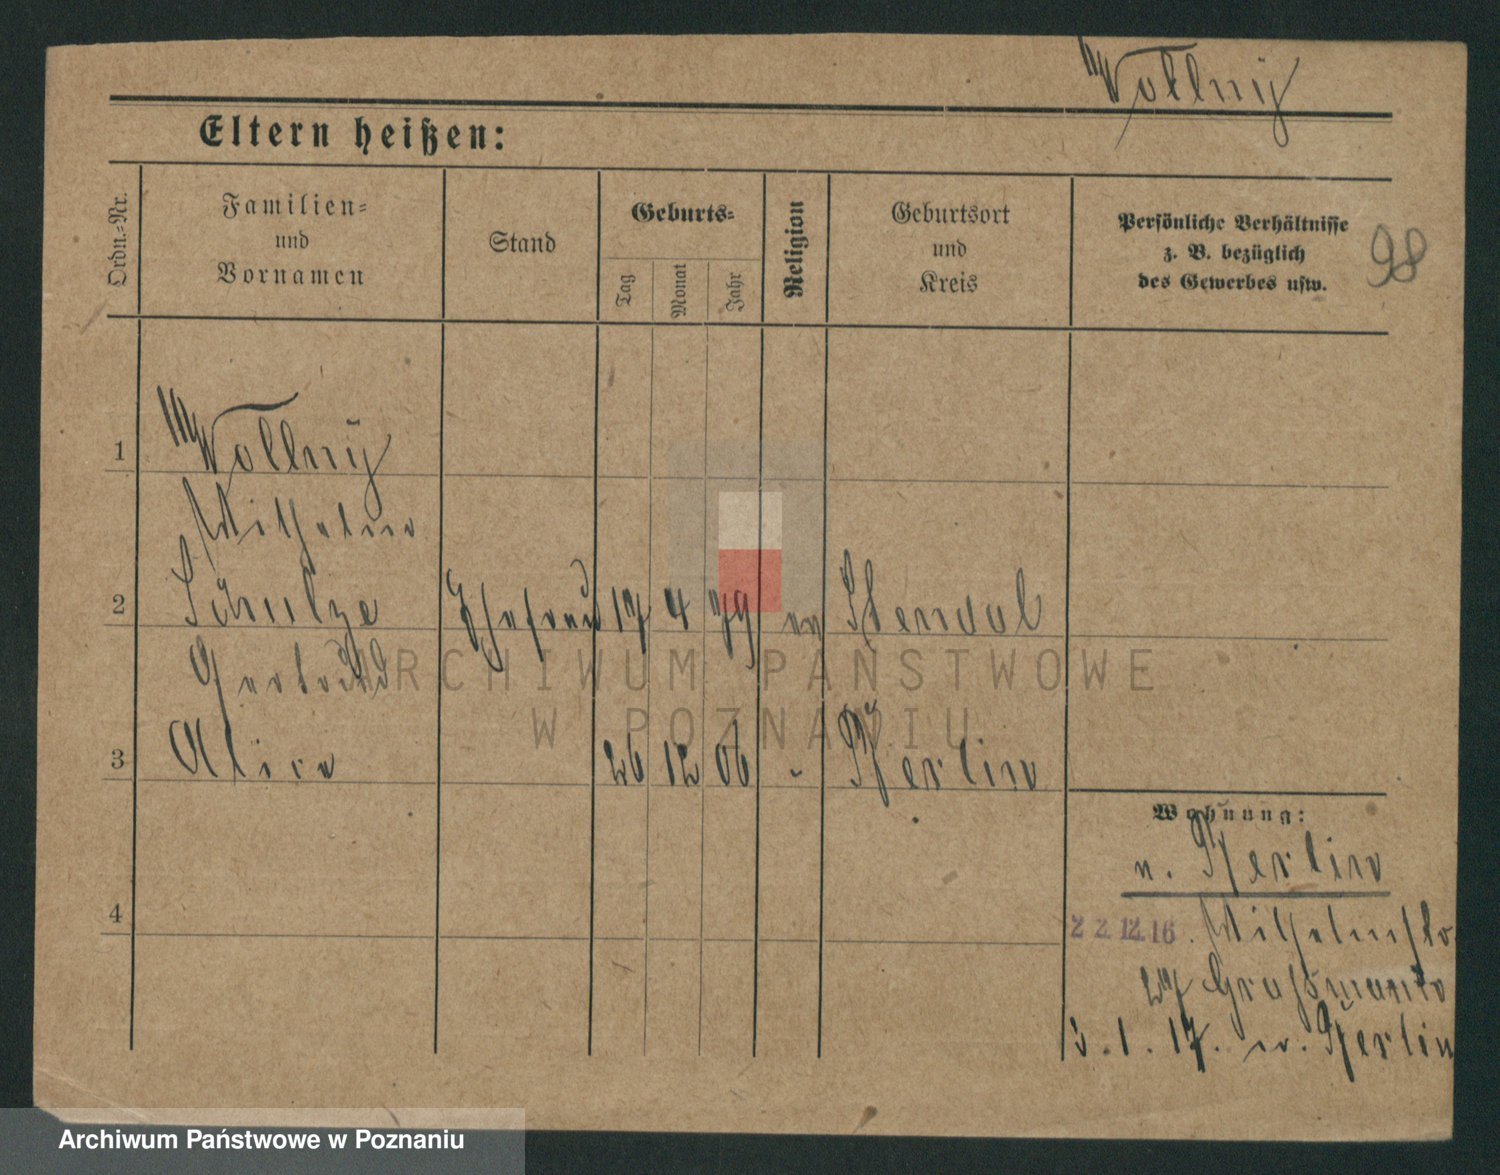 Wollny
Eltern heißen:
Ordn.-Nr.
Familien-
und
Vornamen
Stand
Geburts-
Tag
Monat
Jahr
Religion
Geburtsort
und
Kreis
Persönliche Verhältnisse
z. B. bezüglich
des Gewerbes usw.
98
1
Wollny
Wilhelm
2
Schulze Ehefrau 17 4 79 ev Stendal
Gertrud
3
Alice 26 12 06 " Berlin
Wohnung:
n. Berlin
22.12.16. Wilhelmstr
27 Grossmann
3.1.17. n. Berlin
4
ARCHIWUM PAŃSTWOWE
W POZNANIU
Archiwum Państwowe w Poznaniu